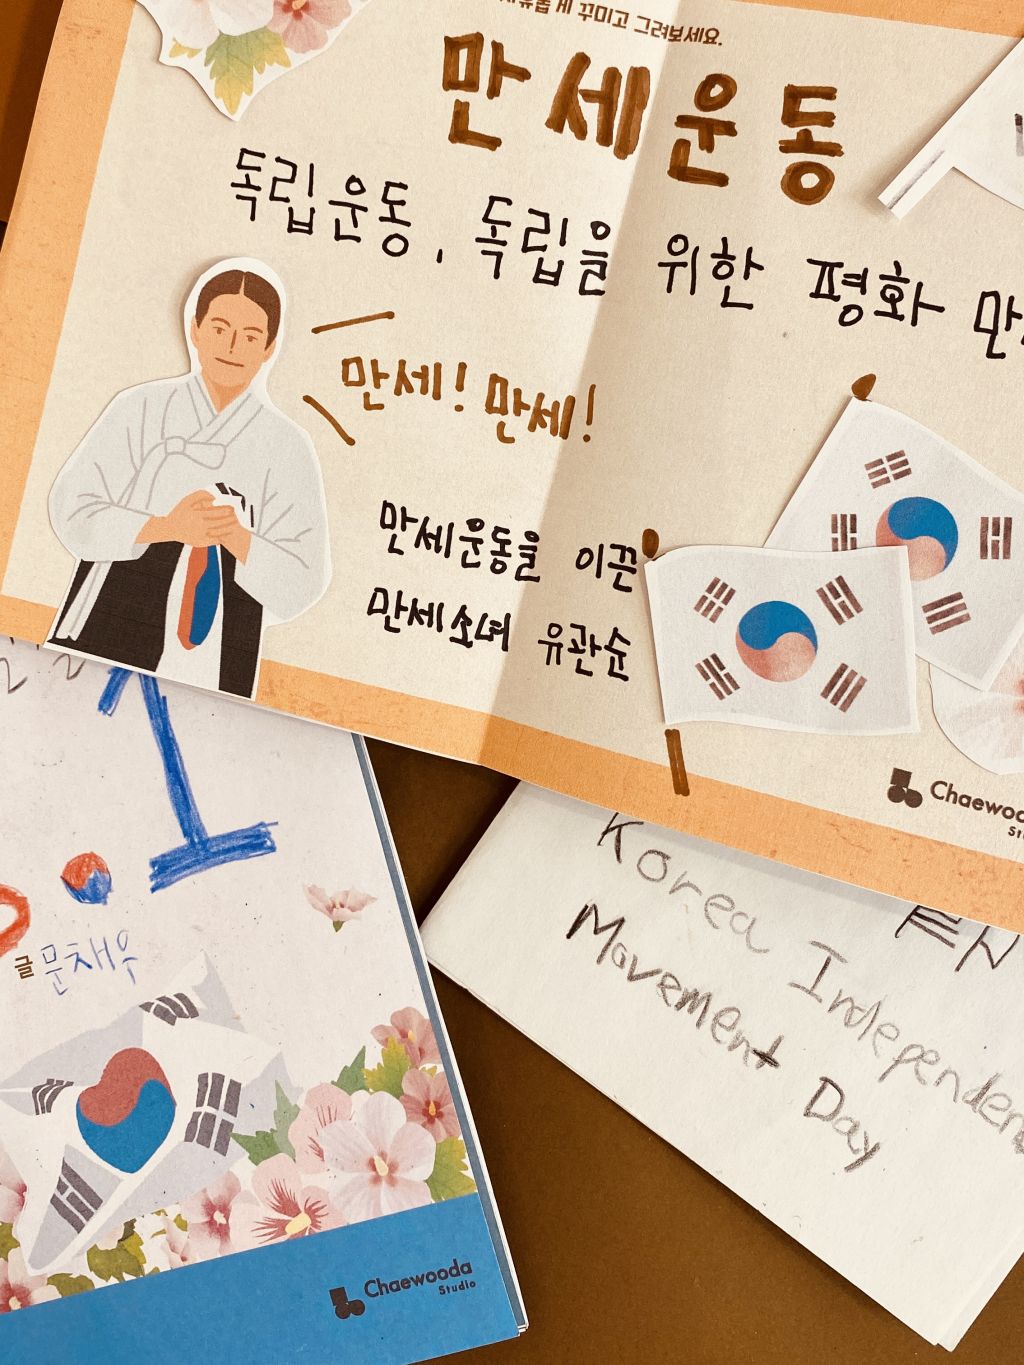 게 꾸미고 그려보세요.
만세운동
독립운동, 독립을 위한 평화
만세! 만세!
만세운동을 이끈
만세소녀 유관순
Chaewooda
글 문채우
Chaewooda
Studio
Korea Independen
Movement Day